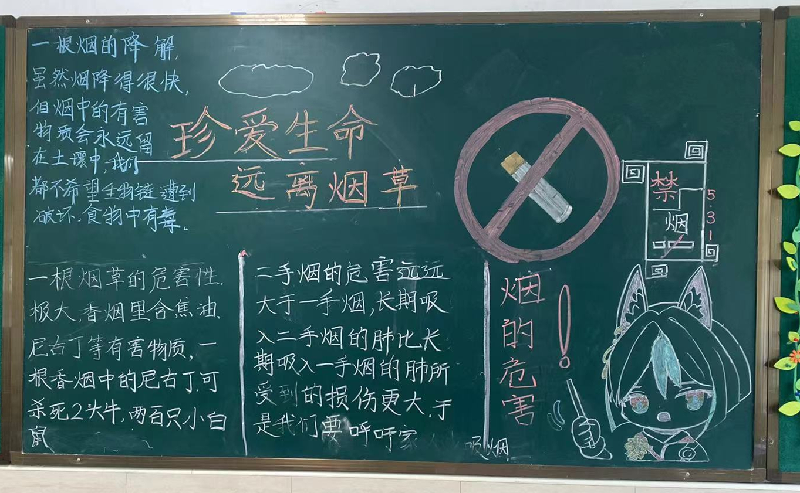 一根烟的降解,
虽然烟降得很快,
但烟中的有害
物质会永远留
在土壤中,我们
都不希望生物链遭到
破坏.食物中有毒。
珍爱生命
远离烟草
禁
烟
531
一根烟草的危害性.
极大.香烟里含焦油.
尼古丁等有害物质,一
根香烟中的尼古丁可
杀死2头牛,两百只小白
鼠
二手烟的危害远远
大于一手烟,长期吸
入二手烟的肺比长
期吸入一手烟的肺所
受到的损伤更大,于
是我们要呼吁
吸烟
烟的危害!